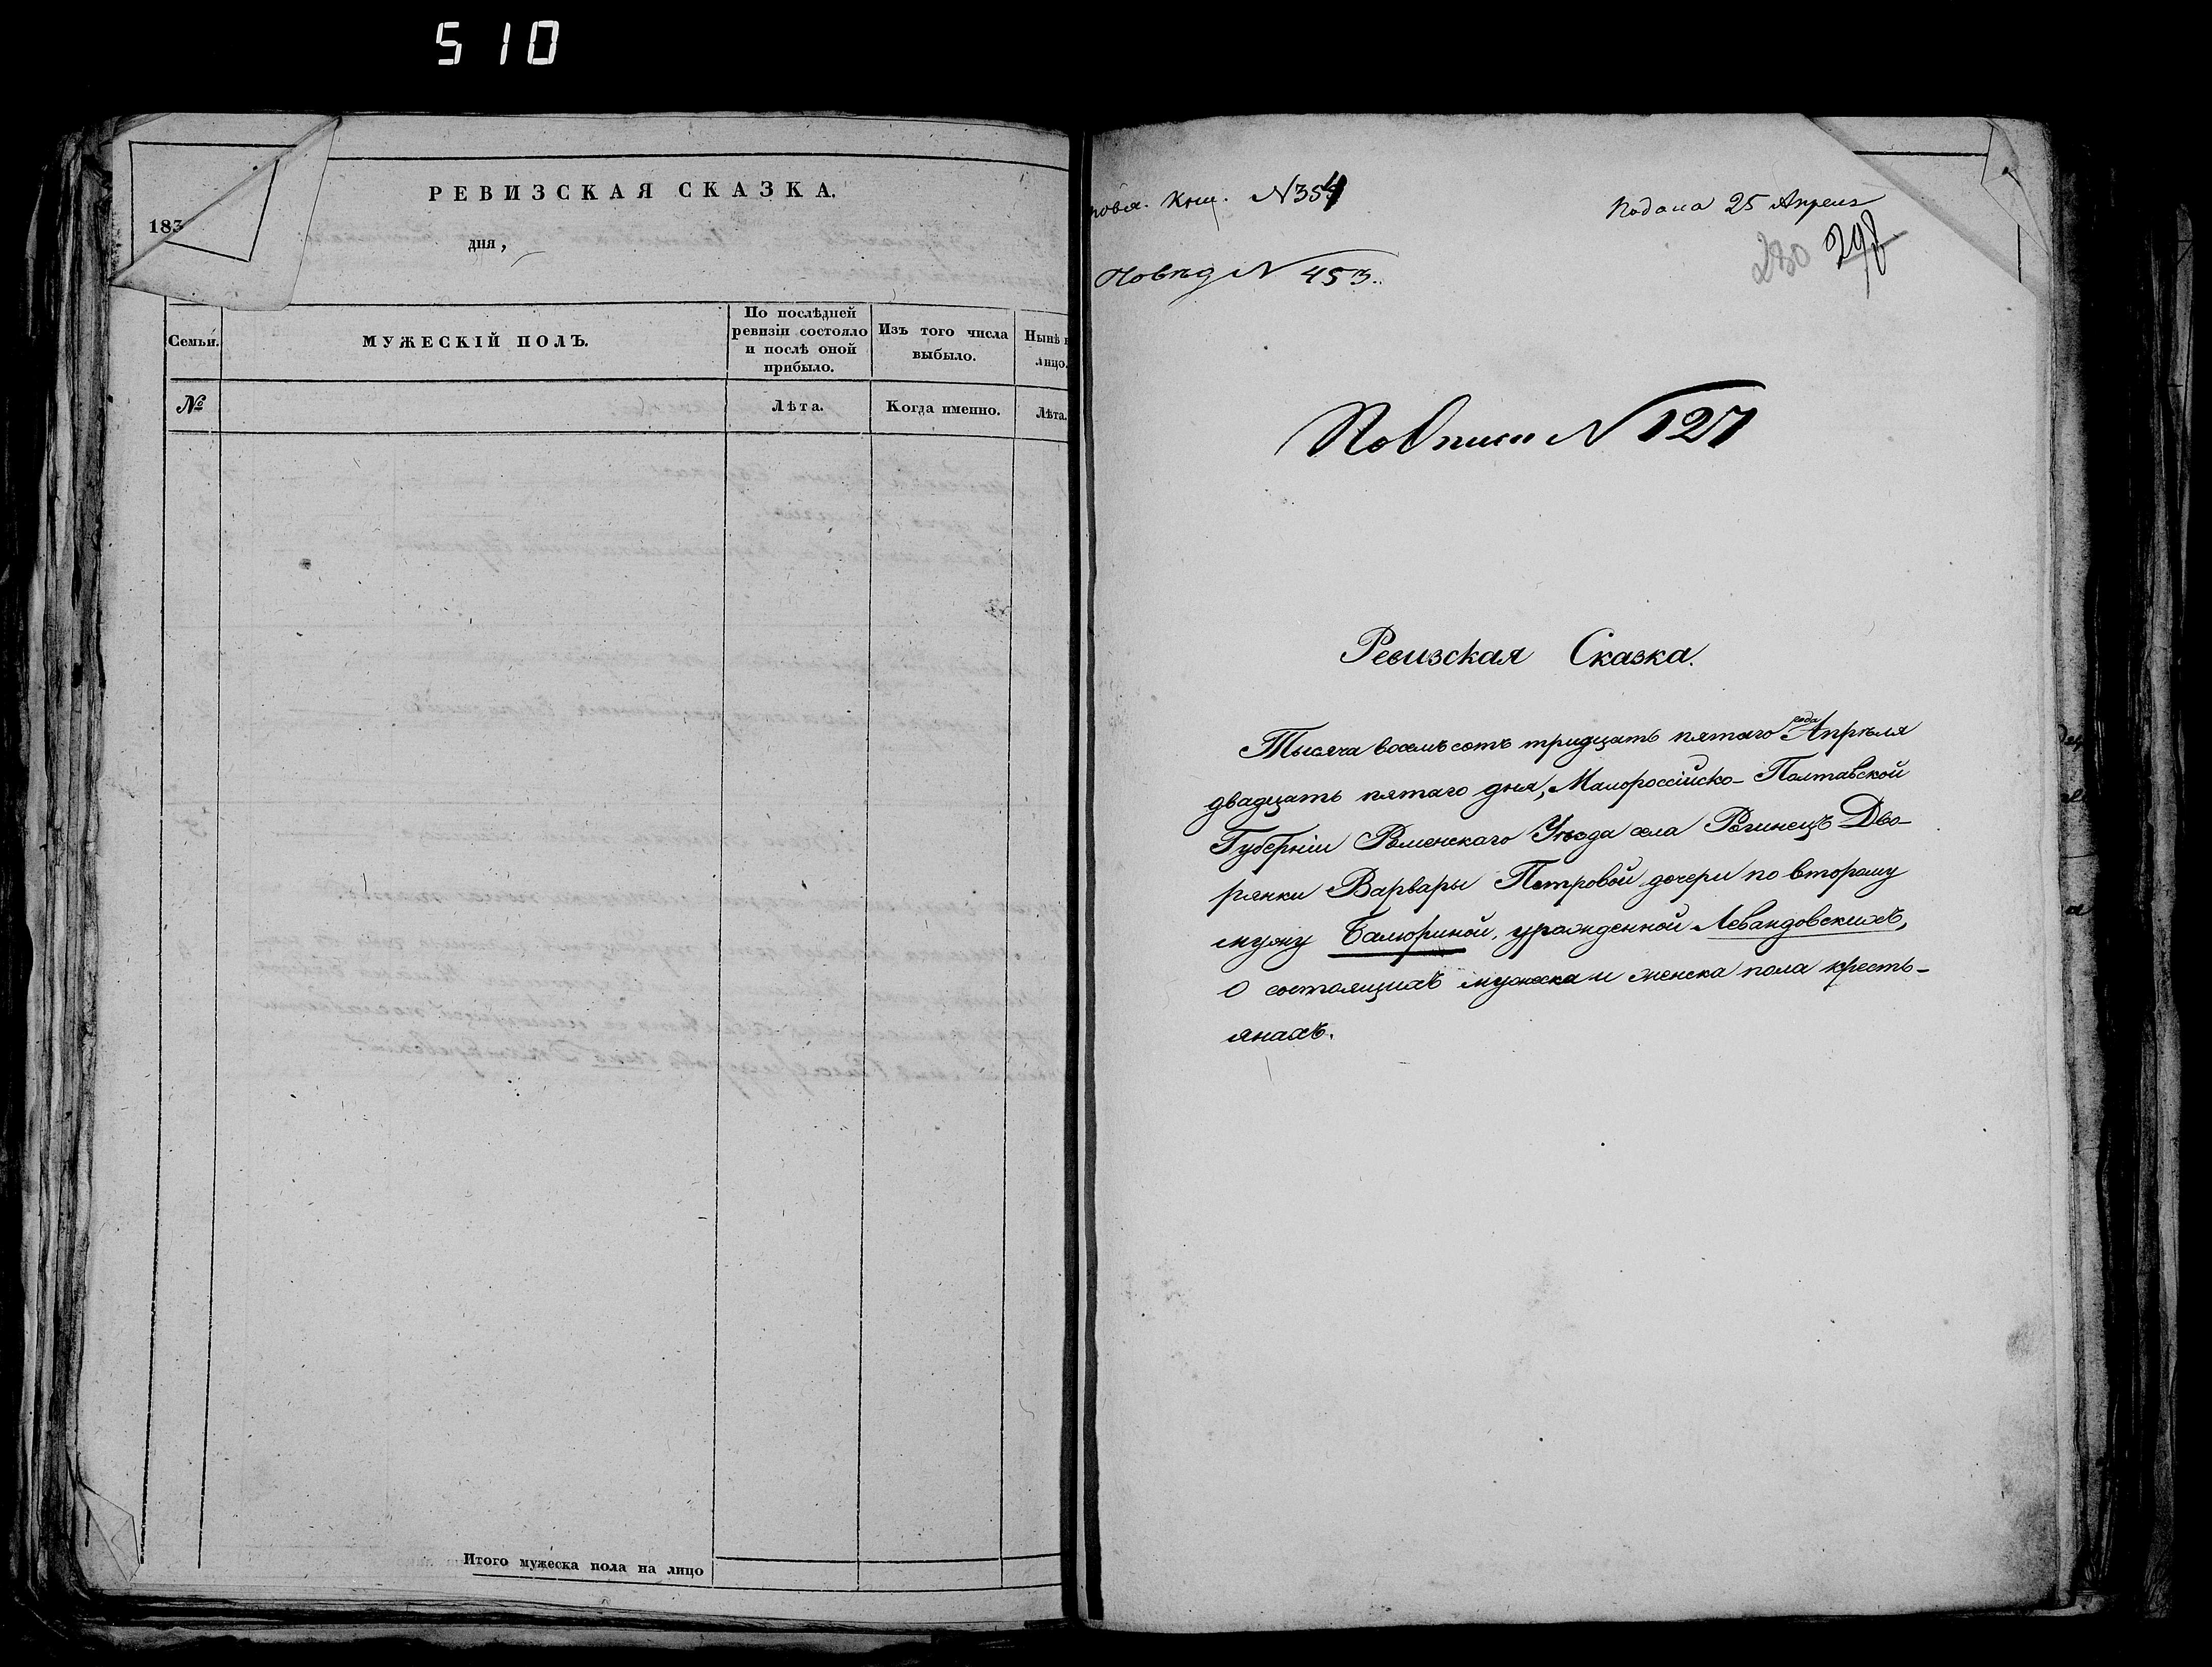 510
РЕВИЗСКАЯ СКАЗКА.
183
дня,
Семьи.
МУЖЕСКІЙ ПОЛЪ.
По послѣдней
ревизіи состояло
и послѣ оной
прибыло.
Изъ того числа
выбыло.
Нынѣ
лицо.
№
Лѣта.
Когда именно.
Лѣта.
Итого мужеска пола на лицо
Книг. N 354
Подана 25 Апреля
N 453.
230 298
По описи N 127
Ревизская Сказка.
Тысяча восемьсотъ тридцать пятаго года Апрѣля
двадцать пятаго дня, Малороссійско-Полтавской
Губерніи Роменскаго Уѣзда села Рогинецъ Дво-
рянки Варвары Петровой дочери по второму
мужу Балюриной, урожденной Левандовскихъ,
О состоящихъ мужеска и женска пола кресть-
янахъ.